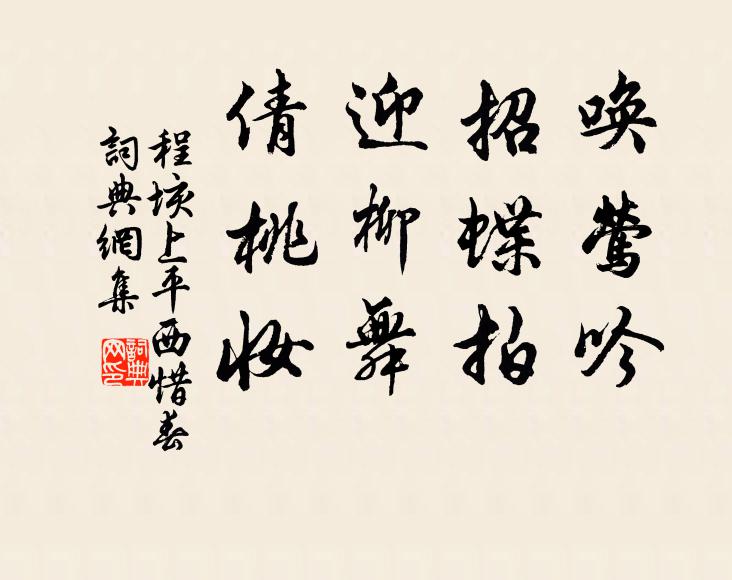 唤莺吟
招蝶拍
迎柳舞
倩桃妆
程垓上平西惜春
詞典網集
詞典網印